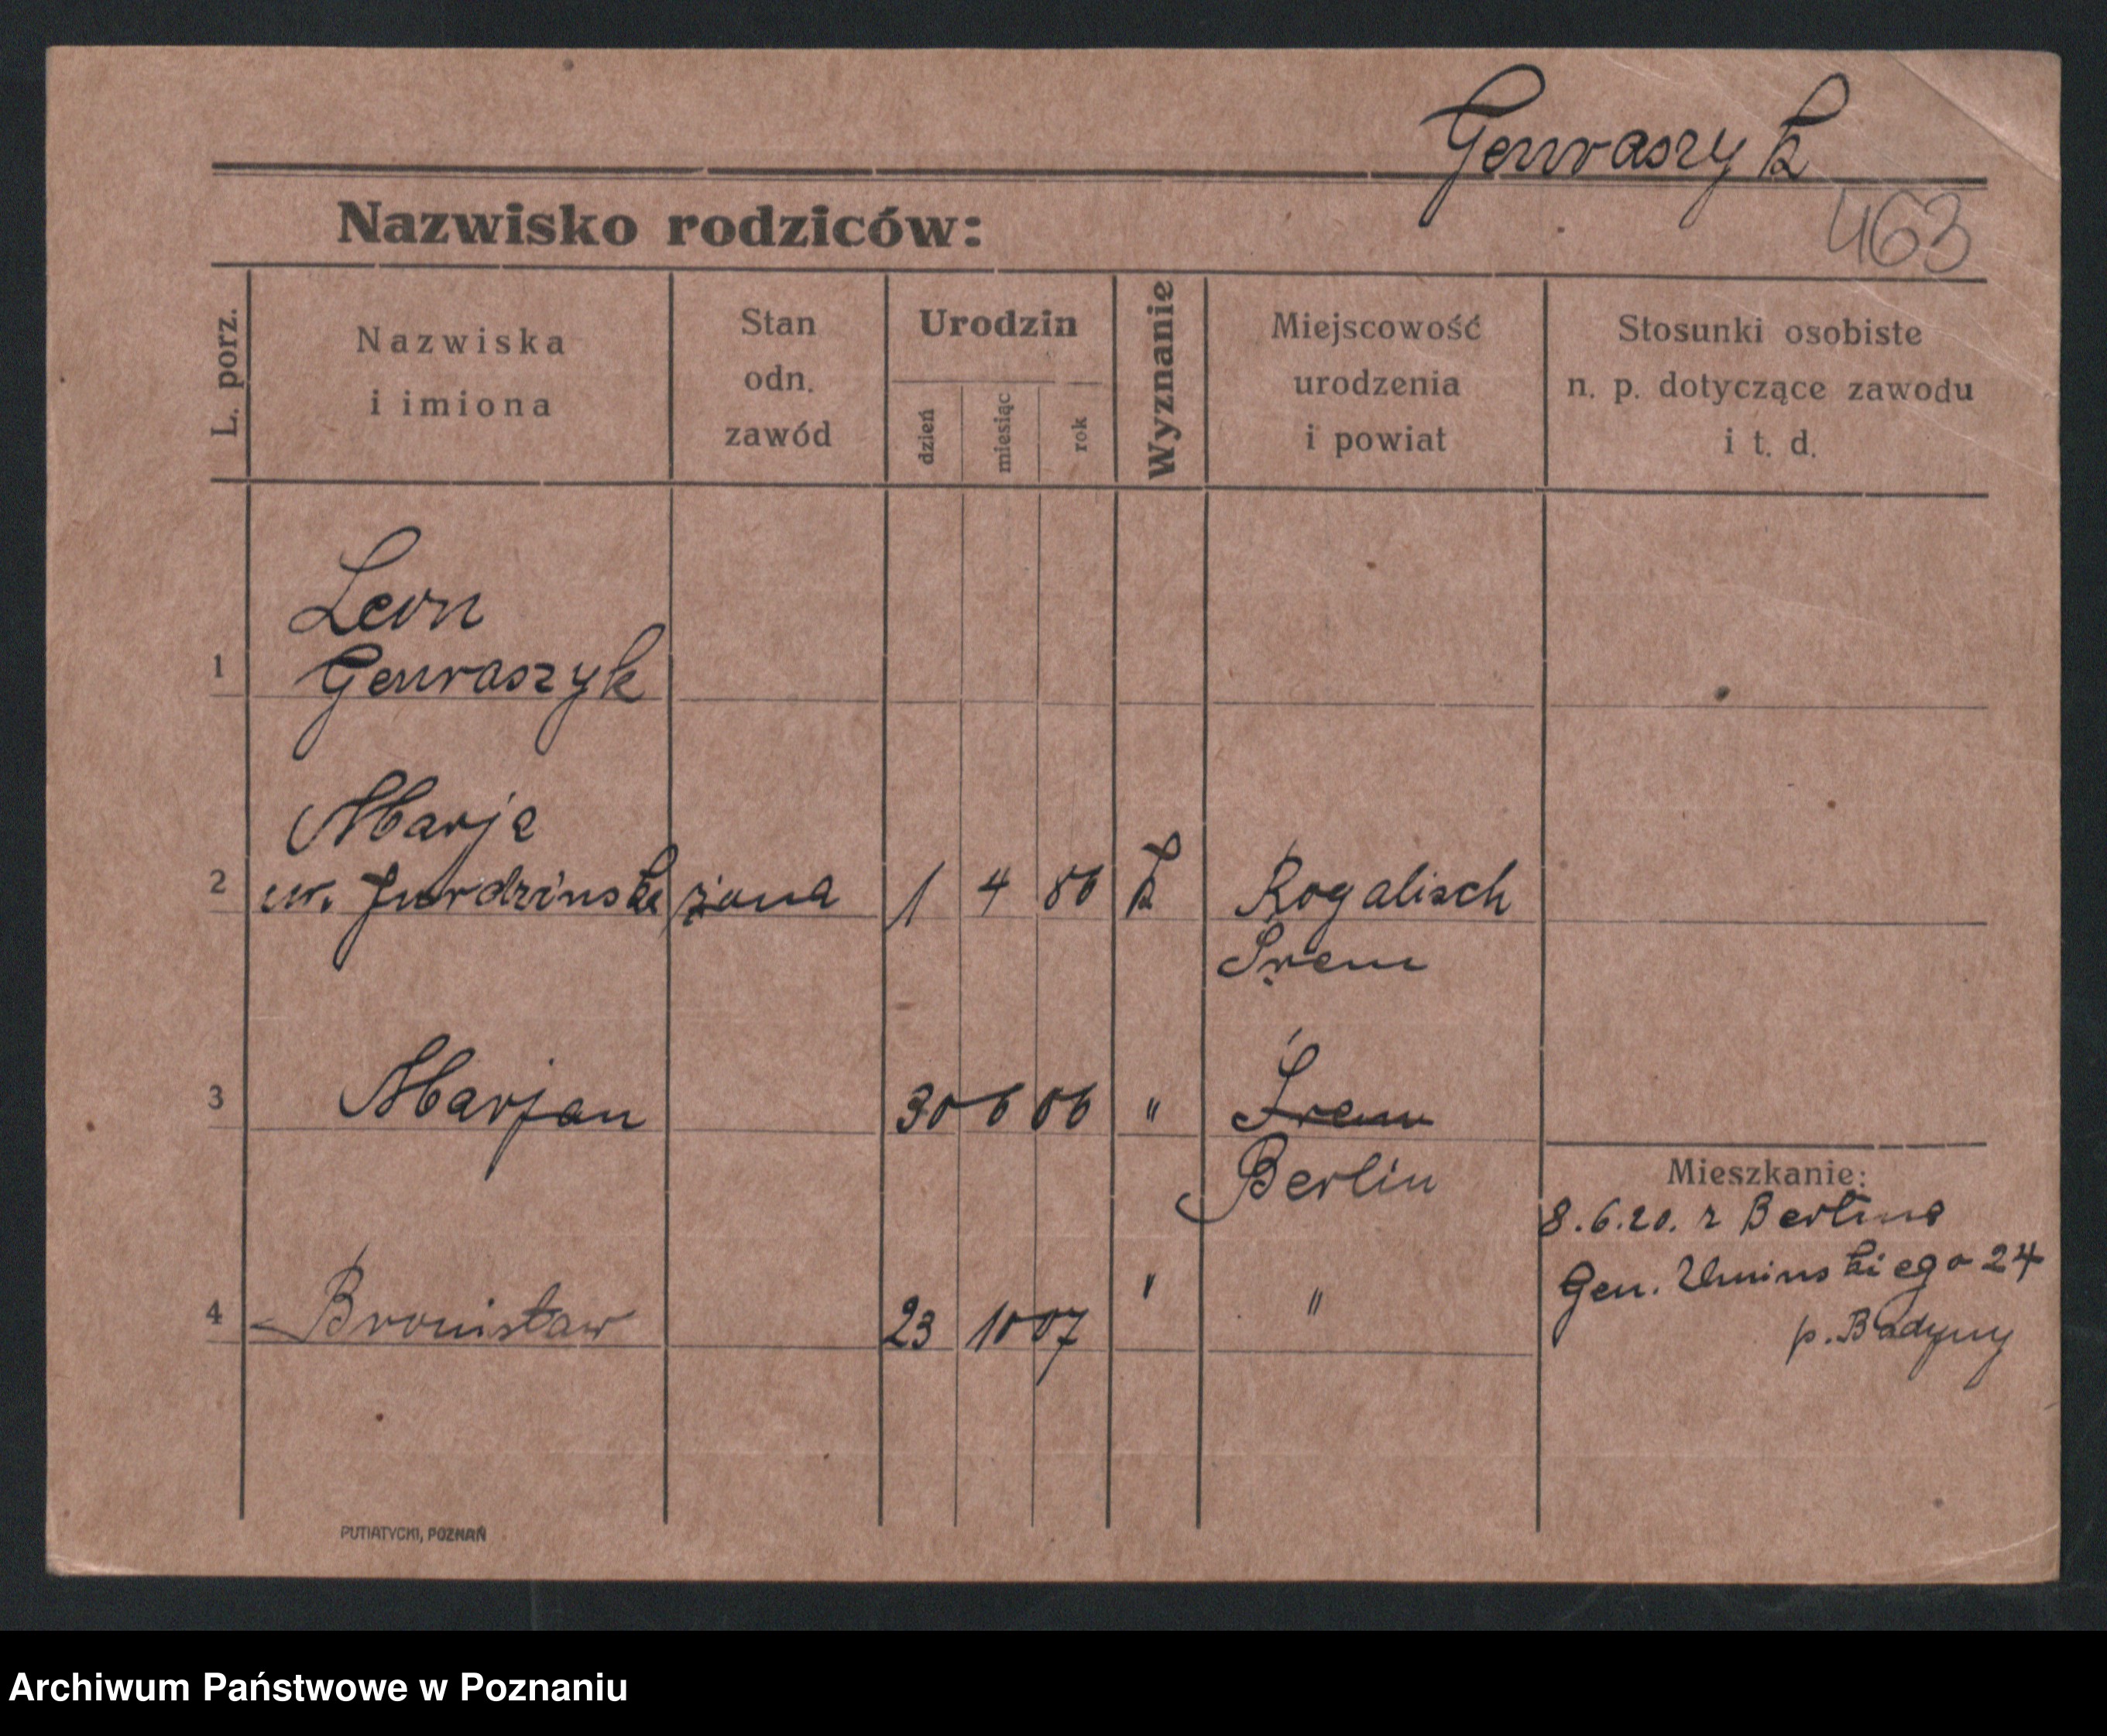 Genraszyk
463
Nazwisko rodziców:
L. porz.
Nazwiska
i imiona
Stan
odn.
zawód
Urodzin
dzień
miesiąc
rok
Wyznanie
Miejscowość
urodzenia
i powiat
Stosunki osobiste
n. p. dotyczące zawodu
i t. d.
Leon
1 Genraszyk
Marja
2 ur. żona 1 4 86 k Rogalisch
Śrem
3 Marjan 30 6 06 " Śrem
Berlin
4 Bronisław 23 10 07 " "
Mieszkanie:
8.6.20. z Berlina
Gen. Uminskiego 24
p.
PUTIATYCKI, POZNAŃ
Archiwum Państwowe w Poznaniu